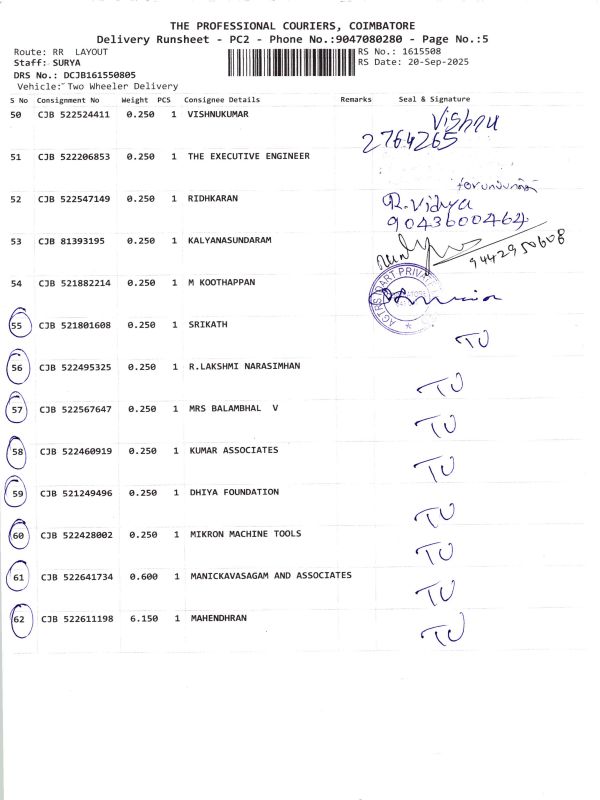 THE PROFESSIONAL COURIERS, COIMBATORE
Delivery Runsheet - PC2 - Phone No.:9047080280 - Page No.:5
Route: RR LAYOUT
RS No.: 1615508
Staff: SURYA
RS Date: 20-Sep-2025
DRS No.: DCJB161550805
Vehicle: Two Wheeler Delivery
S No Consignment No Weight PCS Consignee Details Remarks Seal & Signature
50 CJB 522524411 0.250 1 VISHNUKUMAR Vishnu
2764265
51 CJB 522206853 0.250 1 THE EXECUTIVE ENGINEER
52 CJB 522547149 0.250 1 RIDHKARAN R.Vidya
9043600464
53 CJB 81393195 0.250 1 KALYANASUNDARAM 9442950608
54 CJB 521882214 0.250 1 M KOOTHAPPAN
55 CJB 521801608 0.250 1 SRIKATH TU
56 CJB 522495325 0.250 1 R.LAKSHMI NARASIMHAN TU
57 CJB 522567647 0.250 1 MRS BALAMBHAL V TU
58 CJB 522460919 0.250 1 KUMAR ASSOCIATES TU
59 CJB 521249496 0.250 1 DHIYA FOUNDATION TU
60 CJB 522428002 0.250 1 MIKRON MACHINE TOOLS TU
61 CJB 522641734 0.600 1 MANICKAVASAGAM AND ASSOCIATES TU
62 CJB 522611198 6.150 1 MAHENDHRAN TU